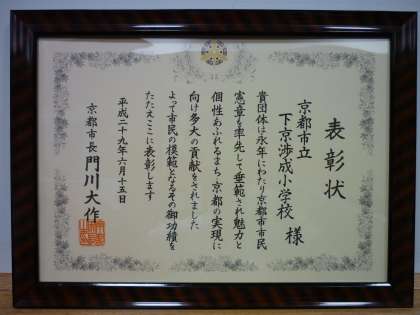 表彰状
京都市立
下京渉成小学校 様
貴団体は永年にわたり京都市市民
憲章を率先して垂範され魅力と
個性あふれるまち京都の実現に
向け多大の貢献をされました
よって市民の模範となるその御功績を
たたえここに表彰します
平成二十九年六月十五日
京都市長 門川大作